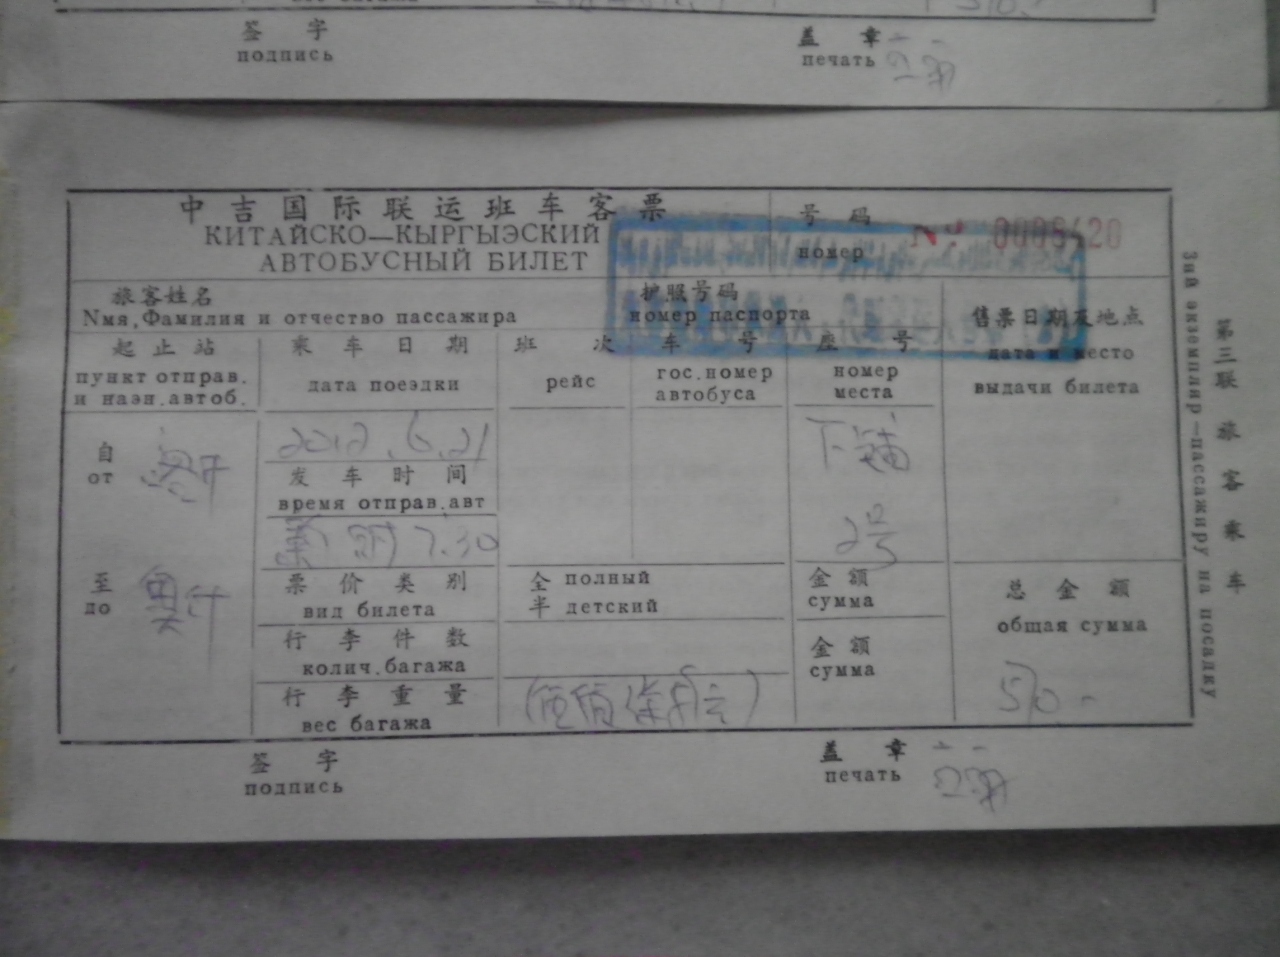 签 字
盖 章
подпись
печать
中吉国际联运班车客票
号 码
КИТАЙСКО—КЫРГЫЭСКИЙ
№ 0006420
АВТОБУСНЫЙ БИЛЕТ
номер
旅客姓名
护照号码
售票日期及地点
Nмя,Фамилия и отчество пассажира
номер паспорта
дата и место
выдачи билета
起 止 站
乘 车 日 期
班 次
车 号
座 号
пункт отправ.
и наэн.автоб.
дата поеэдки
рейс
гос.номер
автобуса
номер
места
自
от
2012.6.21
下铺
发 车 时 间
время отправ.авт
7:30
2号
至
до
奥什
票 价 类 别
全 полный
金 额
总 金 额
вид билета
半 детский
сумма
общая сумма
行 李 件 数
金 额
колич.багажа
сумма
行 李 重 量
510.-
вес багажа
签 字
盖 章
подпись
печать
第三联 旅客乘车
3ий экземпляр—пассажиру на посадку